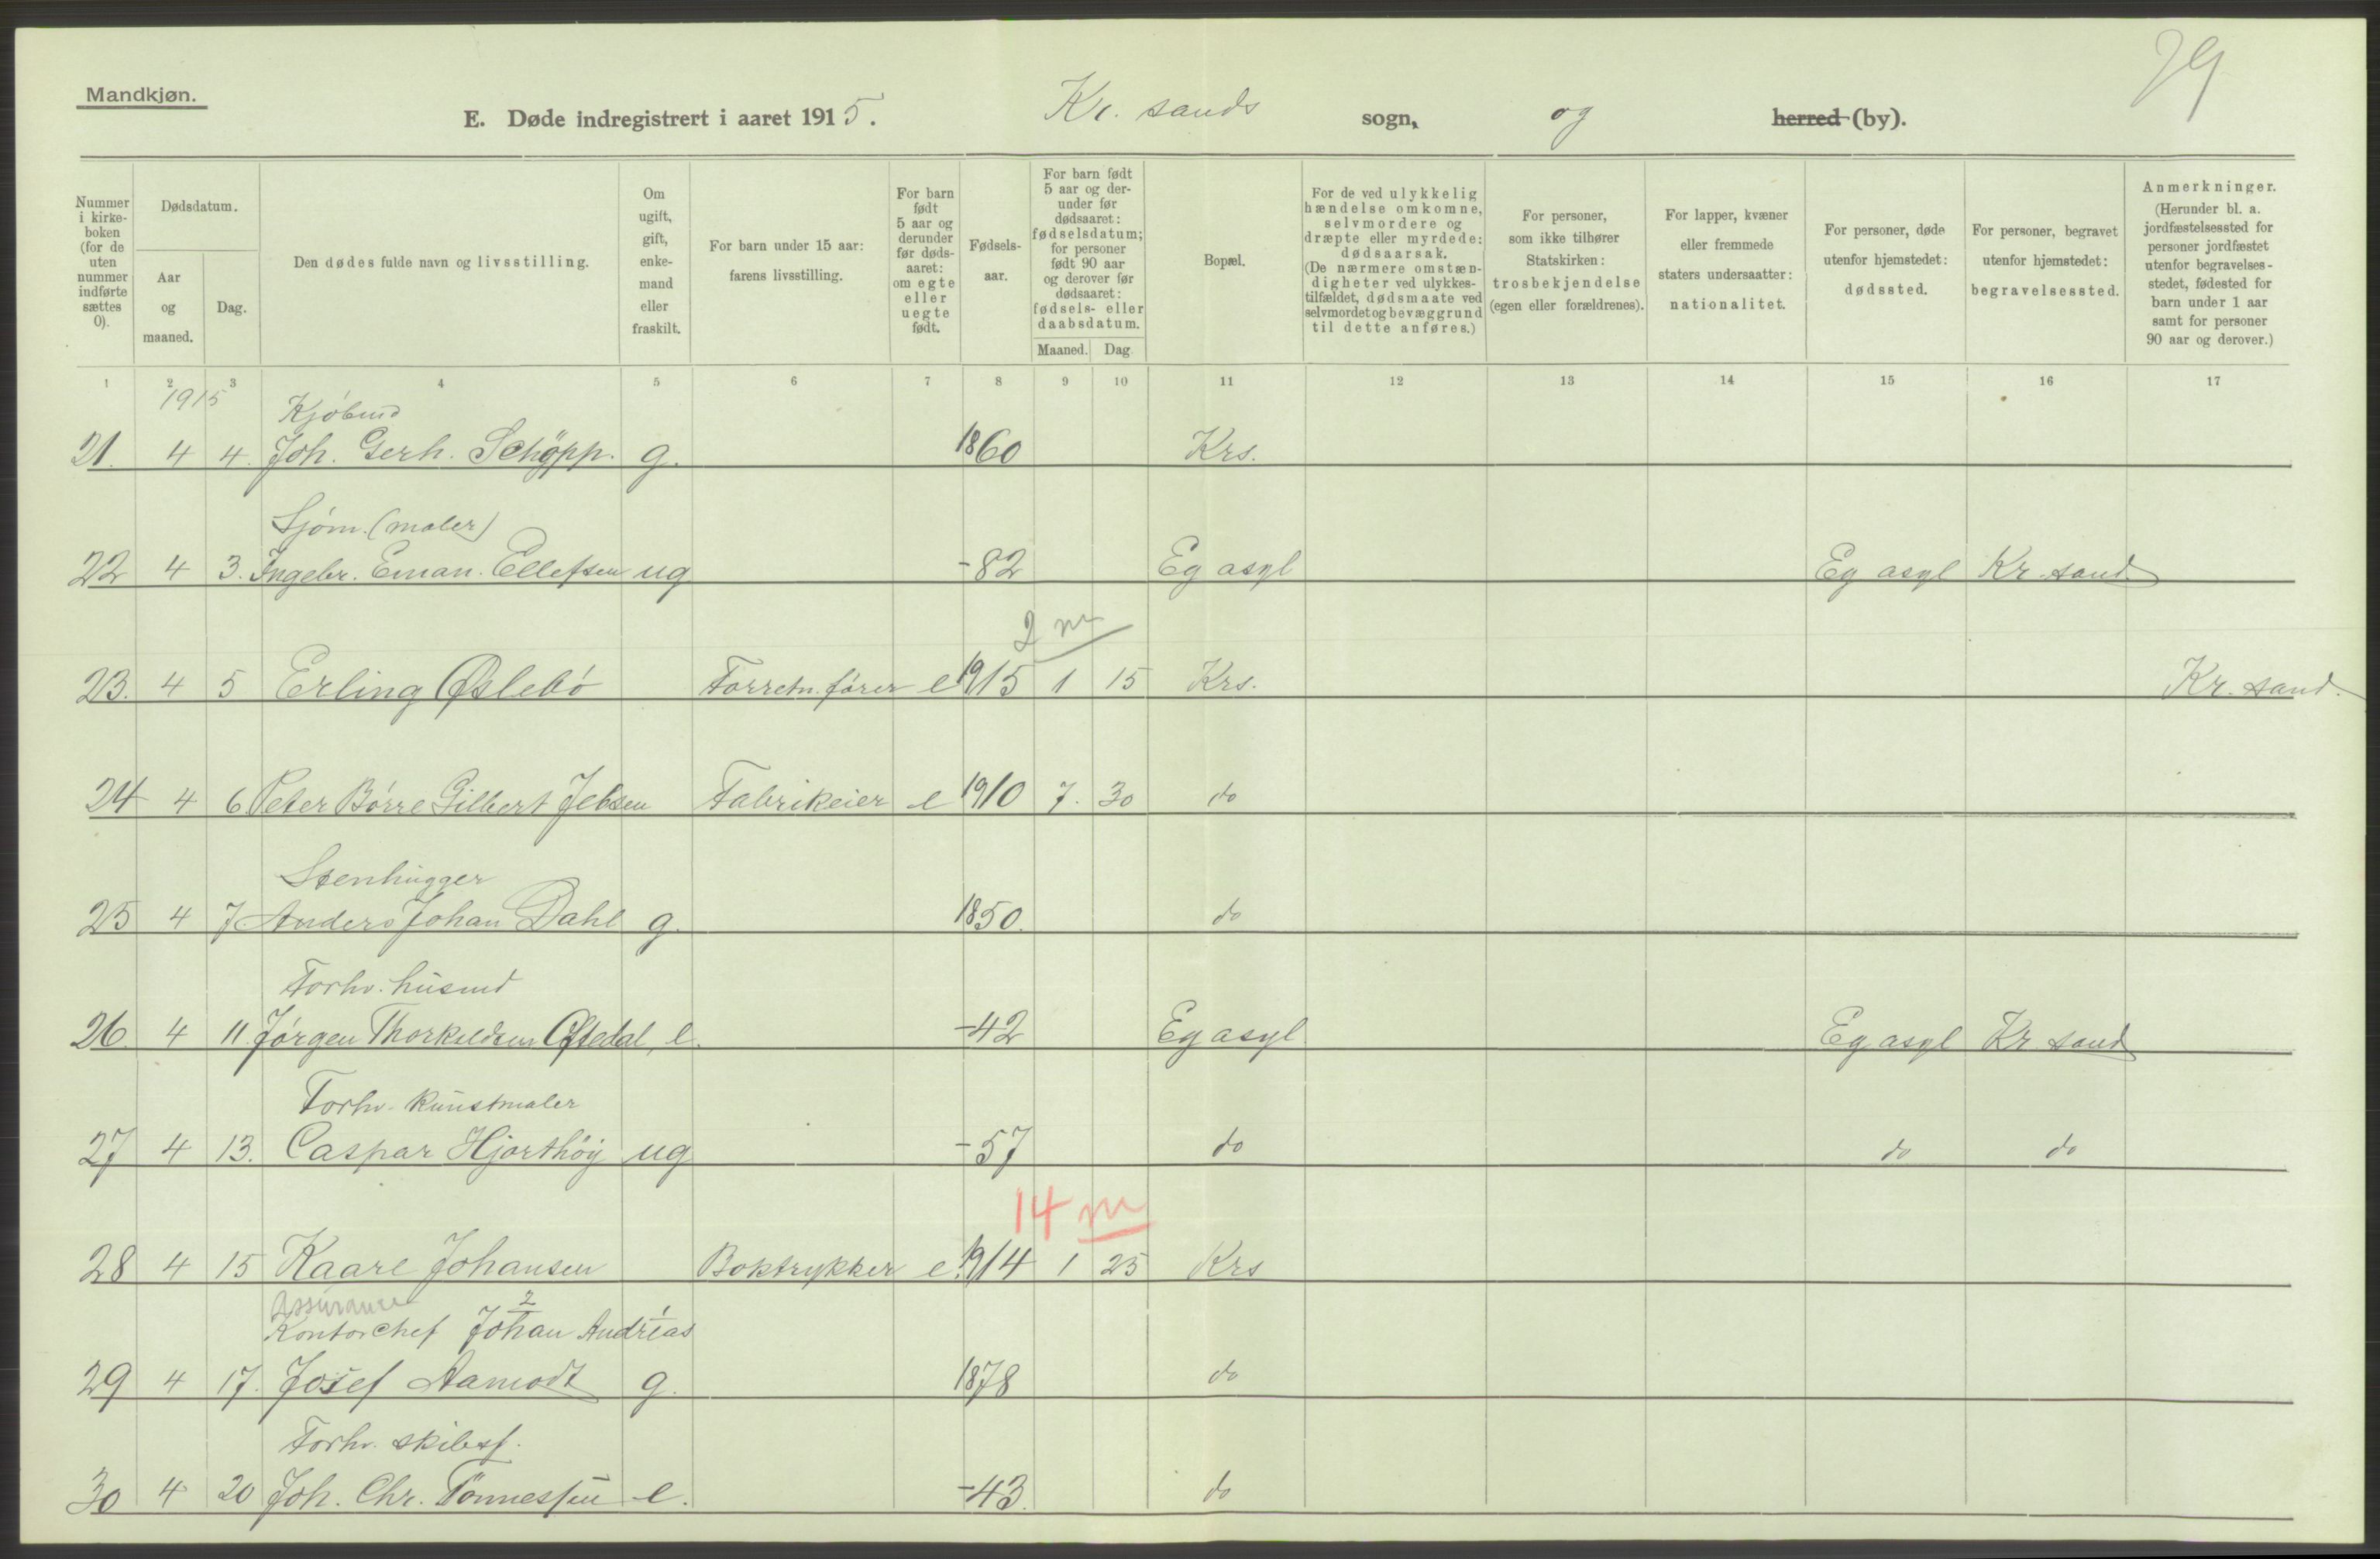 Mandkjøn.
29
E. Døde indregistrert i aaret 1915. Kr. sands sogn, og herred (by).
Nummer i kirkeboken (for de uten nummer indførte sættes 0).
Dødsdatum.
Aar og maaned.
Dag.
Den dødes fulde navn og livsstilling.
Om ugift, gift, enkemand eller fraskilt.
For barn under 15 aar: farens livsstilling.
For barn født 5 aar og derunder før dødsaaret: om egte eller uegte født.
Fødselsaar.
For barn født 5 aar og derunder før dødsaaret: fødselsdatum; for personer født 90 aar og derover før dødsaaret: fødsels- eller daabsdatum.
Maaned. Dag
Bopæl.
For de ved ulykkelig hændelse omkomne, selvmordere og dræpte eller myrdede: dødsaarsak. (De nærmere omstændigheter ved ulykkestilfældet, dødsmaate ved selvmordet og bevæggrund til dette anføres.)
For personer, som ikke tilhører Statskirken: trosbekjendelse (egen eller forældrenes).
For lapper, kvæner eller fremmede staters undersaatter: nationalitet.
For personer, døde utenfor hjemstedet: dødssted.
For personer, begravet utenfor hjemstedet: begravelsessted.
Anmerkninger. (Herunder bl. a. jordfæstelsessted for personer jordfæstet utenfor begravelsesstedet, fødested for barn under 1 aar samt for personer 90 aar og derover.)
1 2 3 4 5 6 7 8 9 10 11 12 13 14 15 16 17
1915 Kjöbmd
21. 4 4. Joh. Gerh. Schöpp. g. 1860 Krs.
Sjöm. (maler)
22 4 3. Ingebr. Eman. Ellefsen ug -82 Eg asyl Eg asyl Kr. sand
2 m
23. 4 5 Erling Øslebö Forretn. förer e 1915 1 15 Krs. Kr. sand.
24 4 6 Peter Börre Gilbert Jebsen Fabrikeier e 1910 7. 30 do
Stenhugger
25 4 7 Anders Johan Dahl g. 1850. do
Forhv. husmd
26. 4 11. Jörgen Thorkildsen Oftedal, e. -42 Eg asyl Eg asyl Kr sand
Forhv. Kunstmaler
27 4 13. Caspar Hjorthöy ug -57 do do do
14 m
28 4 15 Kaare Johansen Boktrykker e. 1914 1 25 Krs
Assurance 2 1
Kontorchef Johan Andrias
29 4 17. Josef Aamodt g. 1878 do
Forhv. skibsf.
30 4 20 Joh. Chr. Tönnessen e. -43. do